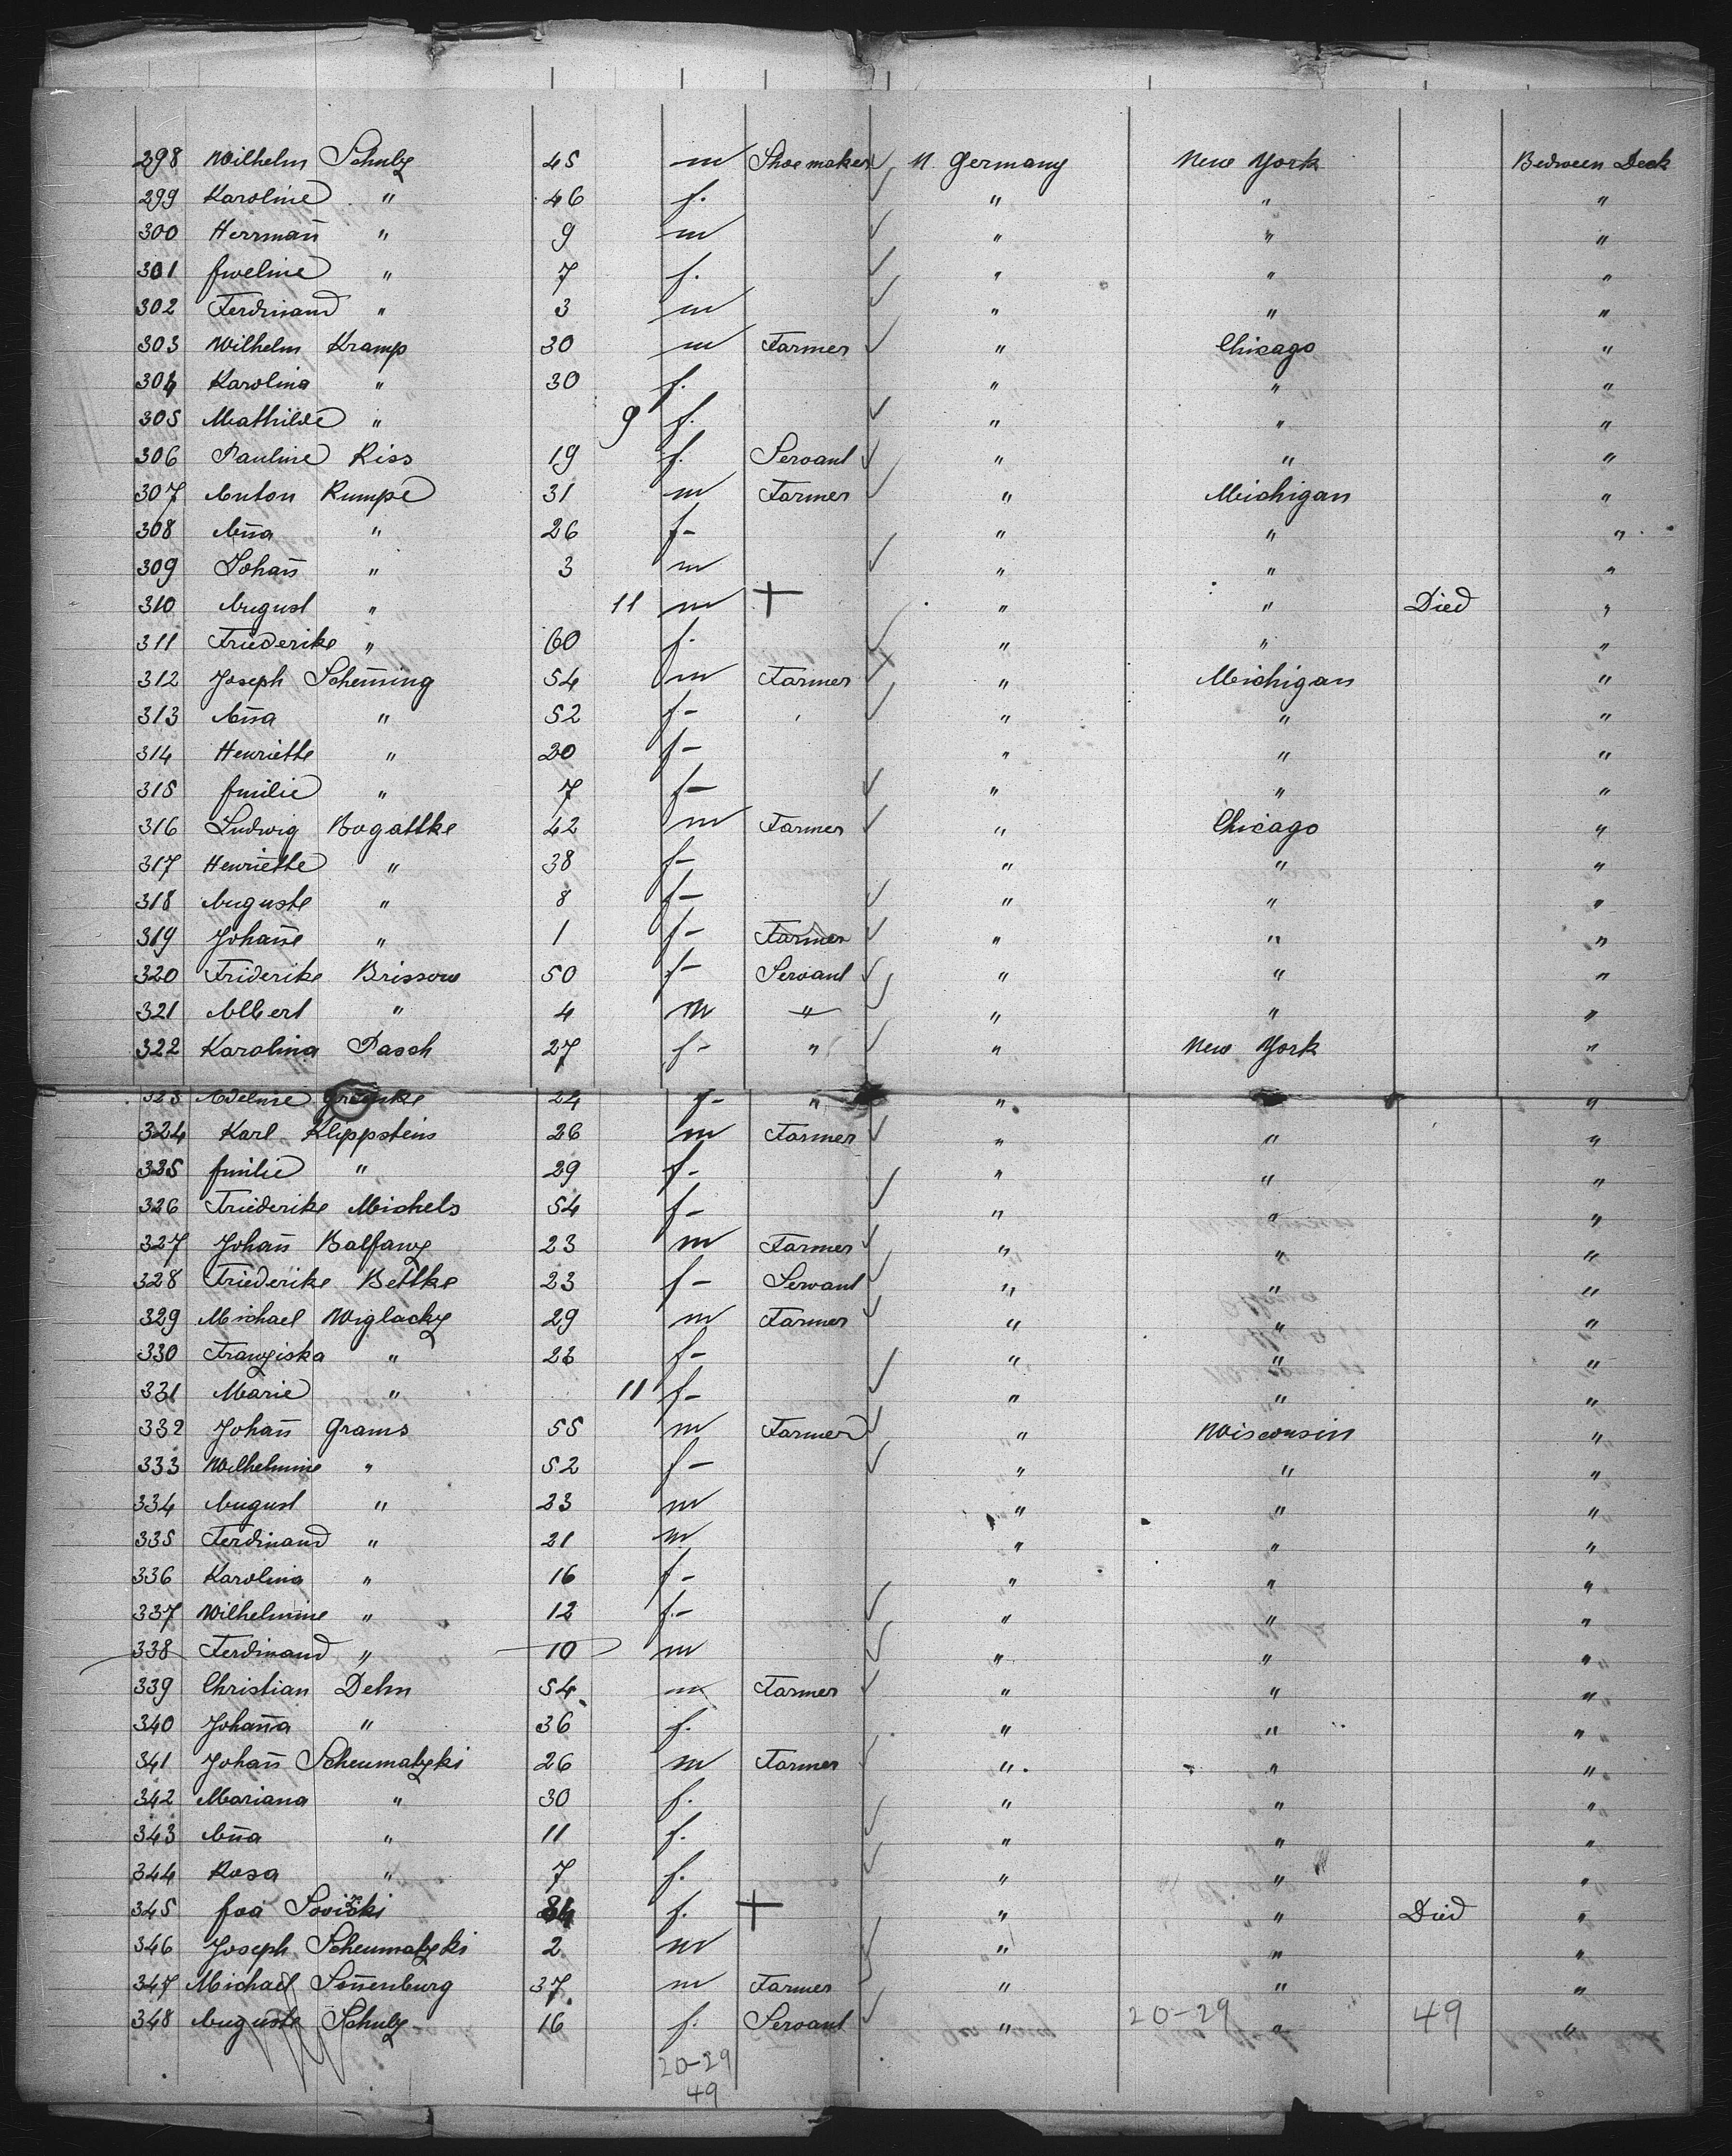 298 Wilhelm Schulz 45 m Shoemaker N. Germany New York Between Deck
299 Karoline " 46 f. " " "
300 Herrmañ " 9 m " " "
301 Eveline " 7 f. " " "
302 Ferdinand " 3 m " " "
303 Wilhelm Kramp 30 m Farmer " Chicago "
304 Karolina " 30 f. " " "
305 Mathilde " 9 f. " " "
306 Pauline Riss 19 f. Servant " " "
307 Anton Rumpe 31 m Farmer " Michigan "
308 Añna " 26 f- " " "
309 Johañ " 3 m " " "
310 August " 11 m + " " Died "
311 Friederike " 60 f. " " "
312 Joseph Scheñing 54 m Farmer " Michigan "
313 Aña " 52 f- " " "
314 Henriette " 20 f- " " "
315 Emilie " 7 f- " " "
316 Ludwig Bogattke 42 m Farmer " Chicago "
317 Henriette " 38 f- " " "
318 Auguste " 8 f- " " "
319 Johañe " 1 f- Farmer " " "
320 Friderike Brissow 50 f- Servant " " "
321 Albert " 4 m " " " "
322 Karolina Pasch 27 f- " " New York "
323 Adeline 24 f- " " "
324 Karl Klippstein 26 m Farmer " " "
325 Emilie " 29 f- " " "
326 Friederike Michels 54 f- " " "
327 Johañ Balfanz 23 m Farmer " " "
328 Friederike Bettke 23 f- Servant " " "
329 Michael Wiglacky 29 m Farmer " " "
330 Franziska " 23 f- " " "
331 Marie " 11 f- " " "
332 Johañ Grams 55 m Farmer " Wisconsin "
333 Wilhelmine " 52 f- " " "
334 August " 23 m " " "
335 Ferdinand " 21 m " " "
336 Karolina " 16 f- " " "
337 Wilhelmine " 12 f.- " " "
338 Ferdinand " 10 m " " "
339 Christian Dehn 54 m Farmer " " "
340 Johaña " 36 f. " " "
341 Johañ Scheumatzki 26 m Farmer " " "
342 Mariana " 30 f. " " "
343 Aña " 11 f. " " "
344 Rosa " 7 f. " " "
345 Eva 84 f. + " " Died "
346 Joseph Scheumatzki 2 m " " "
347 Michael Soñenburg 37 m Farmer " " "
348 Auguste Schulz 16 f. Servant " " "
20-29 49
20-29
49